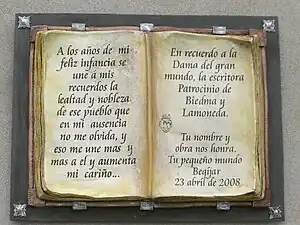 A los años de mi
feliz infancia se
une a mis
recuerdos la
lealtad y nobleza
de ese pueblo que
en mi ausencia
no me olvida, y
eso me une mas y
mas a el y aumenta
mi cariño...
En recuerdo a la
Dama del gran
mundo, la escritora
Patrocinio de
Biedma y
Lamoneda.
Tu nombre y
obra nos honra.
Tu pequeño mundo
Begíjar
23 abril de 2008